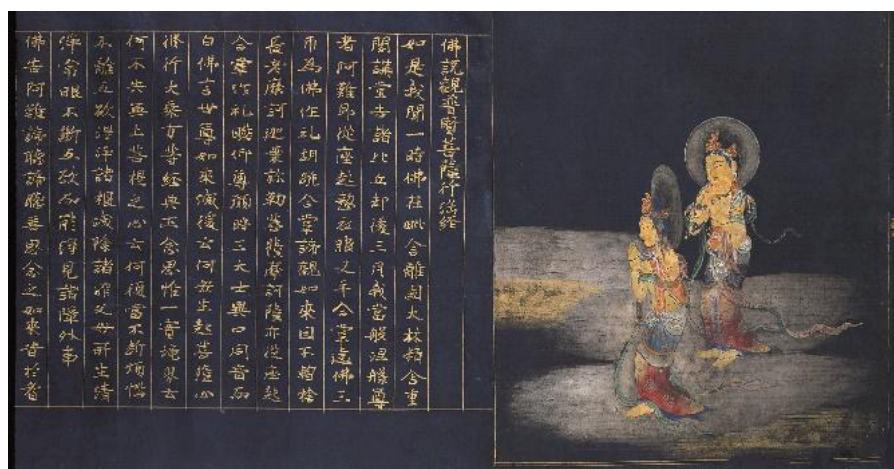 佛說觀普賢菩薩行法經
如是我聞一時佛在毗舍離國大林精舍重
閣講堂告諸比丘却後三月我當般涅槃尊
者阿難即從座起整衣服叉手合掌遶佛三
帀為佛作礼胡跪合掌諦觀如來目不暫捨
長老摩訶迦葉弥勒菩薩摩訶薩亦從座起
合掌作礼瞻仰尊顏時三大士異口同音而
白佛言世尊如來滅後云何衆生起菩薩心
修行大乘方等經典正念思惟一實境界云
何不失無上菩提之心云何復當不斷煩惱
不離五欲得淨諸根滅除諸罪父母所生清
淨常眼不斷五欲而能得見諸障外事
佛告阿難諦聽諦聽善思念之如來昔於耆